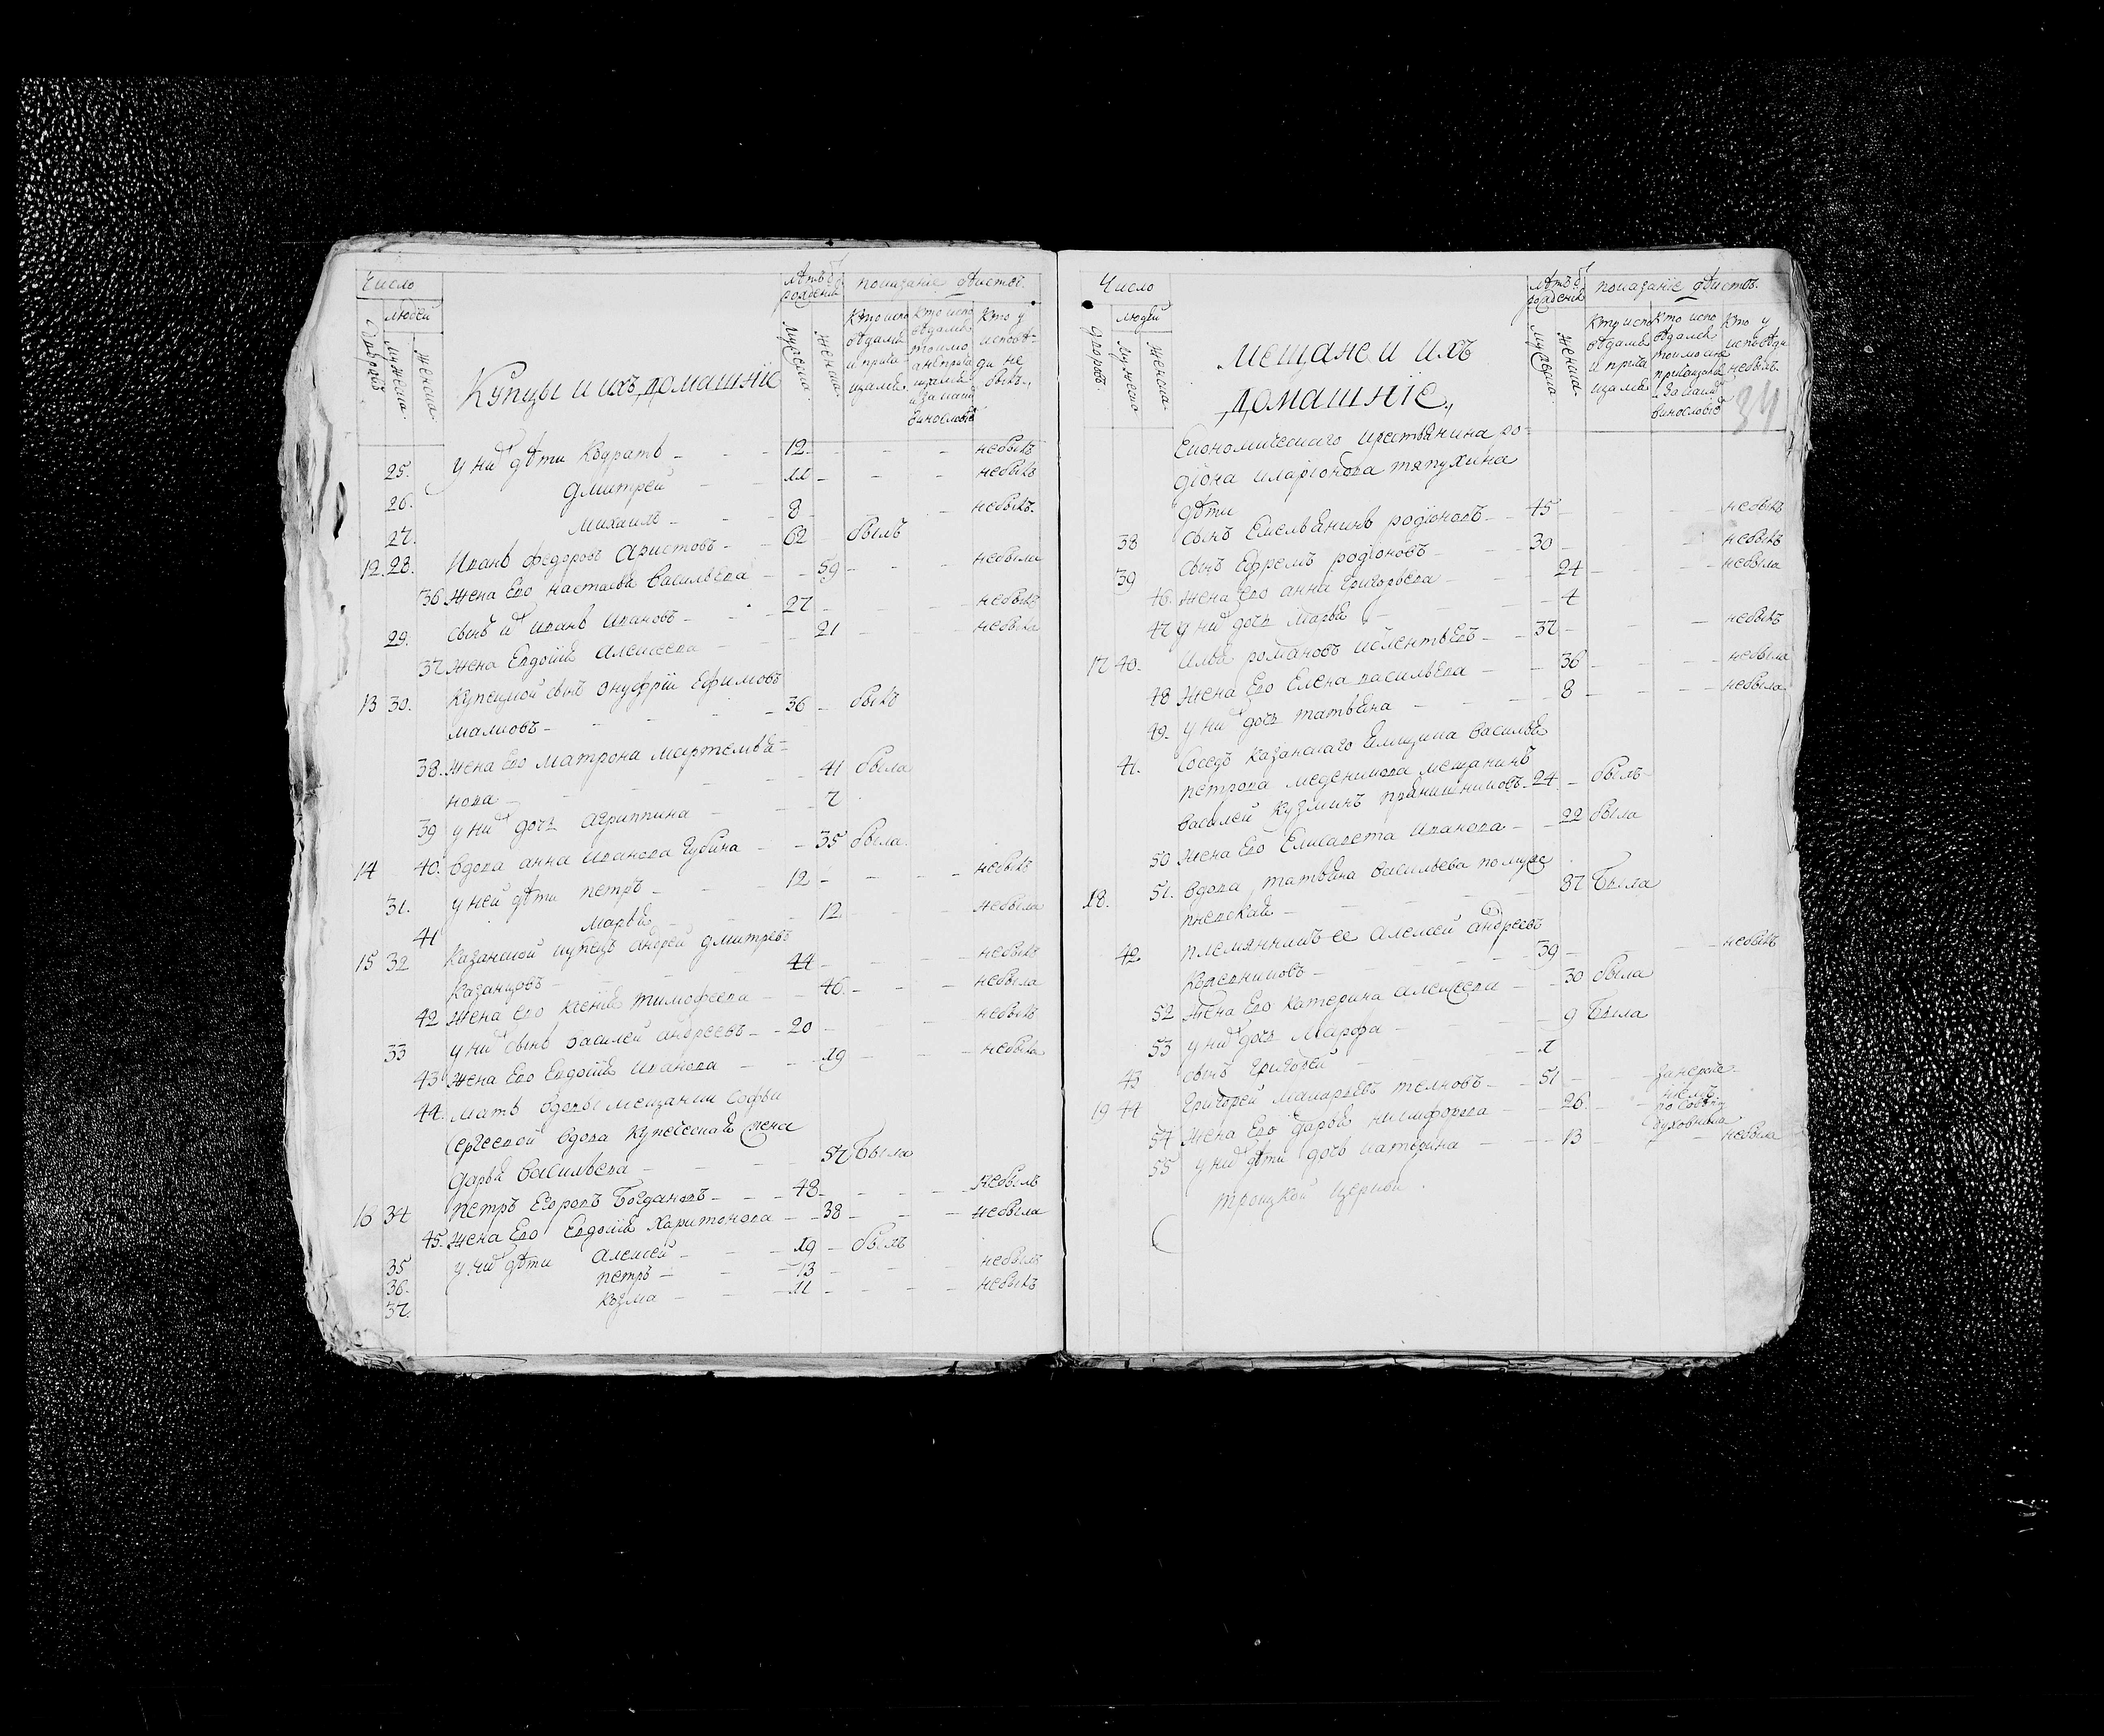 Число
людей
дворовъ
мужеска
женска
Купцы и ихъ домашніе
лѣтъ ѿ рожденія
мужеска
женска
показаніе дѣйствъ
кто у исповѣди не былъ
25. у ни дѣти Кодратъ - 12 - небылъ
26. Дмитрей - 11 - небылъ
27. михаилъ - 8 - небылъ
12. 28. Иванъ федоровъ Аристовъ - 62 былъ
36 жена Его настасья васильева - 59 - небыла
29. сынъ и иванъ ивановъ - 27 - небылъ
37 жена Евдокія алексеева - 21 - небыла
13 30. купецкой сынъ Онуфрій Ефимовъ
малковъ - 36 - былъ
38. жена Его матрона мартемья=
нова - 41 была
39 у ни дочь агриппина - 7
14 40. вдова анна иванова губина - 35 была
31. у ней дѣти петръ - 12 - небылъ
41 марья - 12 - небыла
15 32 казанской купецъ андрей дмитревъ
казанцовъ - 44 - небылъ
42 жена его ксенія тимофеева - 46 - небыла
33 у ни сынъ василей андреевъ - 20 - небылъ
43 жена Его Евдокія иванова - 19 - небыла
44. мать вдовы мещанки софьи
сергеевой вдова купеческая жена
дарья васильева - 57 Была
16 34 петръ Егоровъ Богдановъ - 48 - небылъ
45. жена Его Евдокія харитонова - 38 - небыла
35 у ни дѣти алексей - 19 - былъ
36. петръ - 13 - небылъ
37. козма - 11 - небылъ
Число
людей
дворовъ
мужеско
женска
мещане и ихъ
домашніе,
лѣтъ ѿ рожденія
мужеска
женска
показаніе дѣйствъ
кто у исповѣди небылъ
34
Економическаго крестьянина ро=
діона иларіонова тяпухина
дѣти
38 сынъ Емельянинъ родіоновъ - 45 - небылъ
39 сынъ Ефремъ родіоновъ - 30 - небылъ
46. жена Его анна григорьева - 24 - небыла
47 у ни дочь марья - 4
17 40. илья романовъ - 37 - небылъ
48 жена Его Елена васильева - 36 - небыла
49. у ни дочь татьяна - 8 - небыла
41. Соседъ казанскаго ямщика василья
петрова меденикова мещанинъ
василей кузминъ пряничниковъ - 24 - былъ
50 жена Его Елисавета иванова - 22 была
18. 51. вдова татьяна васильева по муже
- 87 Была
42 племянникъ ее алексей андреевъ
- 39 - небылъ
52 жена Его катерина алексеева - 30 была
53 у ни дочь Марфа - 9 Была
43 сынъ григорей - 1
19 44 григорей макарьевъ телновъ - 51 -
54 жена Его дарья никифорова - 26 - по совѣту духовника
55 у ни дѣти дочь катерина - 13 - небыла
троицкой церкви.